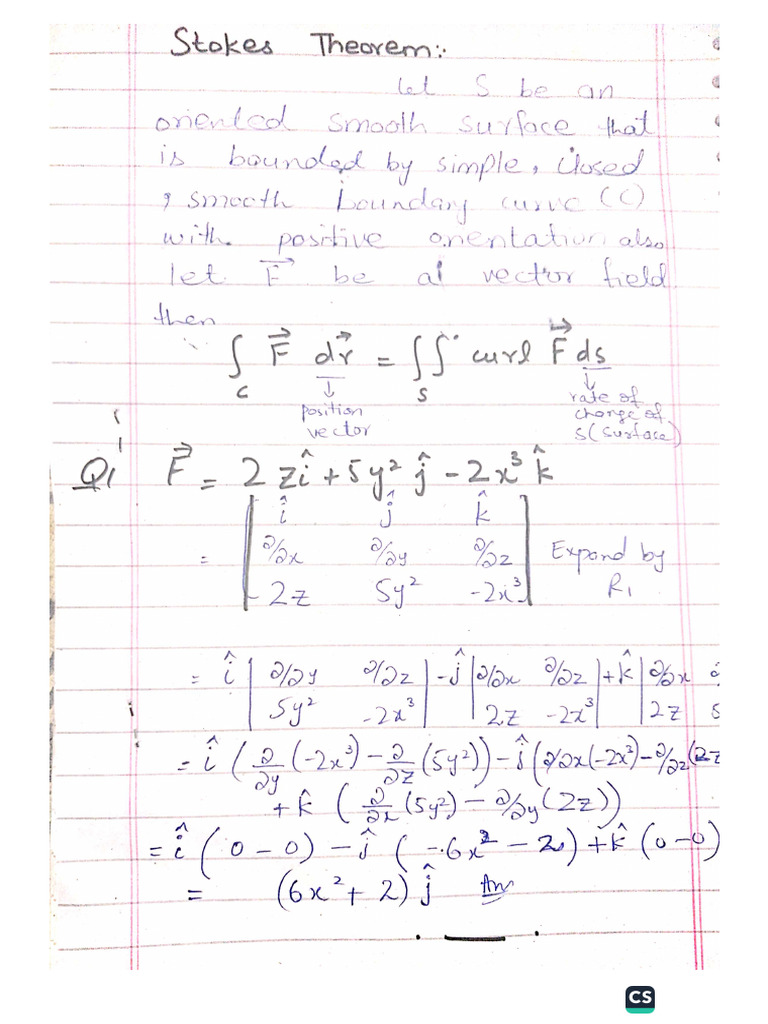 Stokes Theorem:
Let S be an
oriented smooth surface that
is bounded by simple, closed
, smooth boundary curve (C)
with positive orientation also
let F⃗ be a vector field
then
∫ F⃗ dr⃗ = ∬ curl F⃗ ds
C S
position vector
rate of change of S (surface)
Q1 F⃗ = 2zî + 5y² ĵ - 2x³ k̂
î ĵ k̂
= ∂/∂x ∂/∂y ∂/∂z Expand by
2z 5y² -2x³ R1
= î | ∂/∂y ∂/∂z | - ĵ | ∂/∂x ∂/∂z | + k̂ | ∂/∂x
5y² -2x³ | 2z -2x³ | 2z 5
= î (∂/∂y (-2x³) - ∂/∂z (5y²)) - ĵ (∂/∂x (-2x³) - ∂/∂z (2z
+ k̂ (∂/∂x (5y²) - ∂/∂y (2z))
= î (0 - 0) - ĵ (-6x² - 2) + k̂ (0 - 0)
= (6x² + 2) ĵ Ans
CS